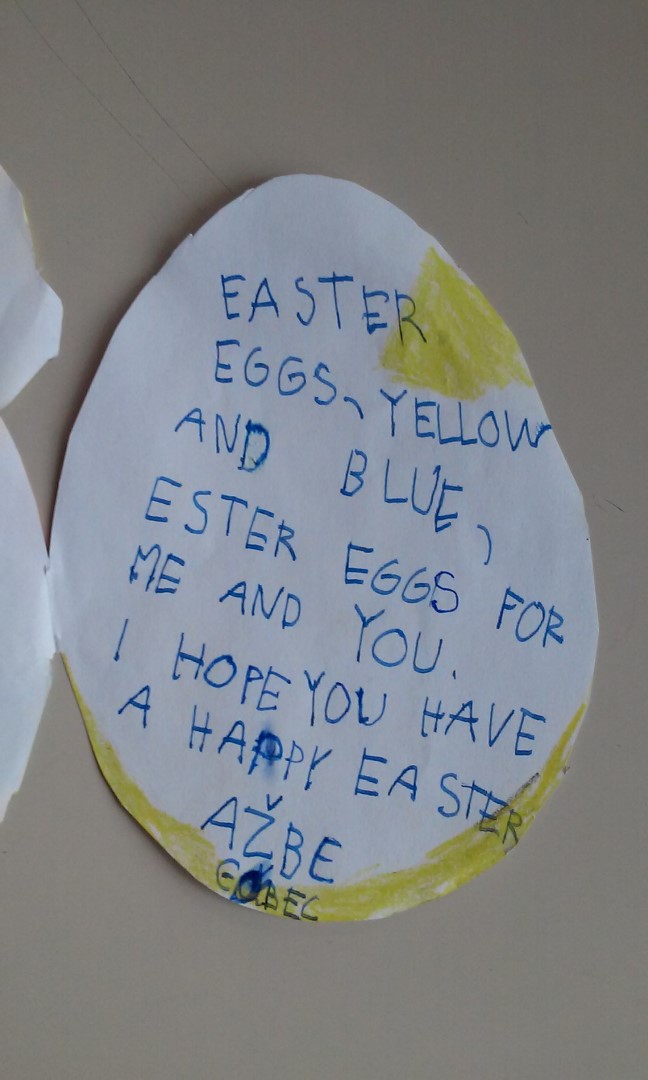 EASTER
EGGS, YELLOW
AND BLUE,
ESTER EGGS FOR
ME AND YOU.
I HOPE YOU HAVE
A HAPPY EASTER
AŽBE